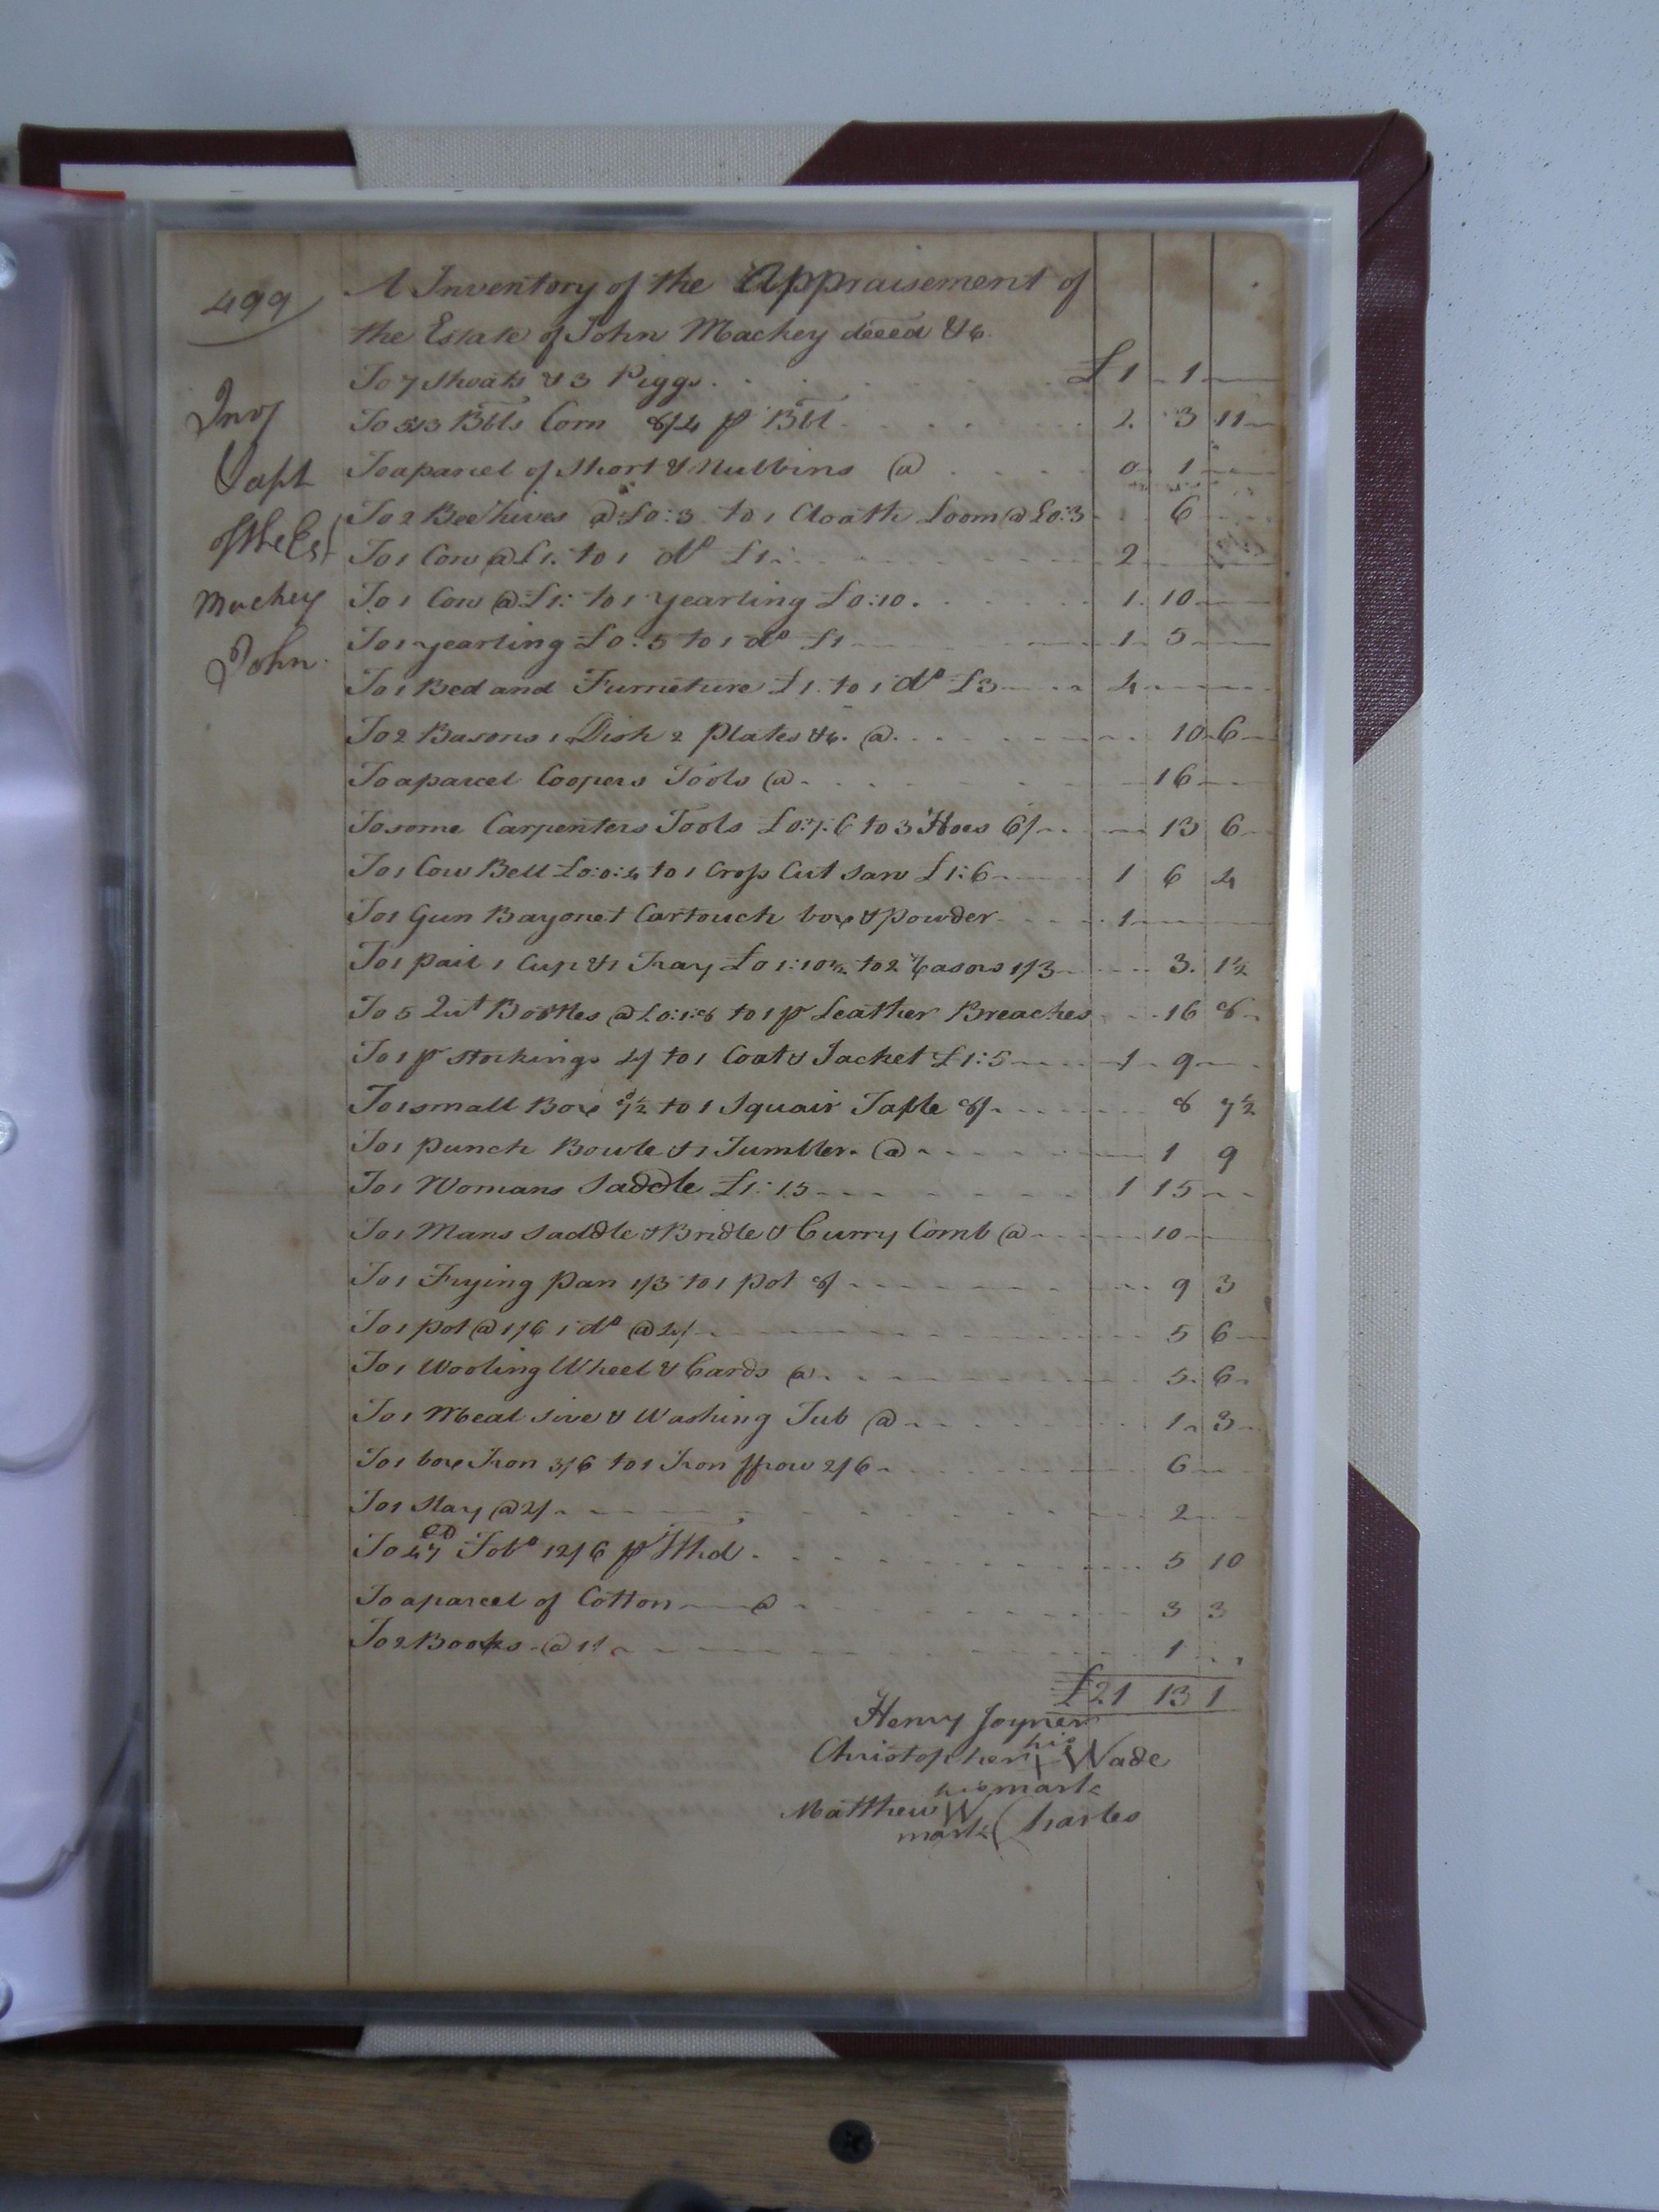 499
A Inventory of the Appraisement of
the Estate of John Mackey deced &c.
Inv
& apt
of the Est
Mackey
John
To 7 Shoats & 3 Piggs £1 1
To 5¼3 Bbls Corn 8/4 p Bbl 2. 3 11
To a parcel of Short & Nubbins @ 0 1
To 2 Bee hives @ £0:3 to 1 Cloath Loom @ £0:3 6
To 1 Cow @ £1: to 1 do £1: 2
To 1 Cow @ £1: to 1 yearling £0:10. 1. 10
To 1 yearling £0:5 to 1 do £1 1 5
To 1 Bed and Furneture £1. to 1 do £3 4
To 2 Basons 1 Dish 2 plates &c. @ 10 6
To a parcel Coopers Tools @ 16
To some Carpenters Tools £0:7:6 to 3 Hoes 6/ 13 6
To 1 Cow Bell £0:0:4 to 1 Cross Cut Saw £1:6 1 6 4
To 1 Gun Bayonet Cartouch box & powder 1
To 1 pail 1 Cup & 1 Tray £0 1:10½ to 2 1/3 3. 1½
To 5 Qut Bottles @ £0:1:8 to 1 p Leather Breaches 16 8
To 1 p Stockings 4/ to 1 Coat & Jacket £1:5 1 9
To 1 small Box 7½ to 1 Squair Table 8/ 8 7½
To 1 punch Bowle & 1 Tumbler @ 1 9
To 1 Womans Saddle £1:15 1 15
To 1 Mans Saddle & Bridle & Curry Comb @ 10
To 1 Frying pan 1/3 to 1 pot 8/ 9 3
To 1 pot @ 1/6 1 do @ 4/ 5 6
To 1 Wooling Wheel & Cards @ 5. 6
To 1 Meal Sive & Washing Tub @ 1 3
To 1 box Iron 3/6 to 1 Iron 2/6 6
To 1 Slay @ 2/ 2
To 47 Tobo 12/6 p Hhd. 5 10
To a parcel of Cotton @ 3 3
To 2 Books @ 1/ 1
£21 13 1
Henry Joyner
Christopher his X Wade
mark
Matthew his W Charles
mark